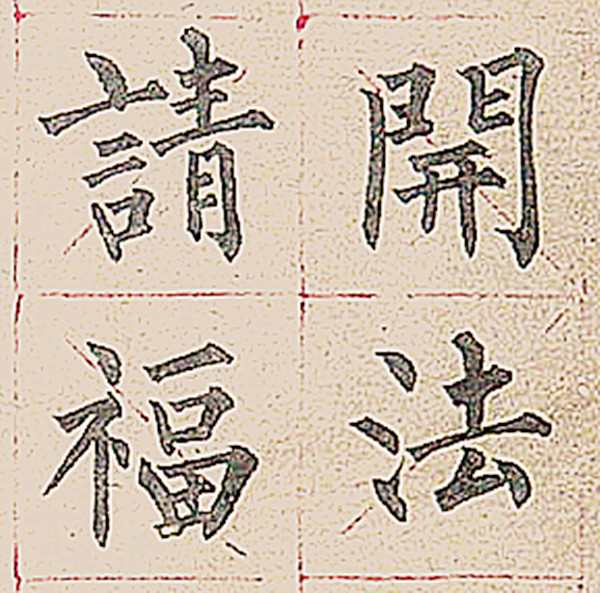 開法
請福